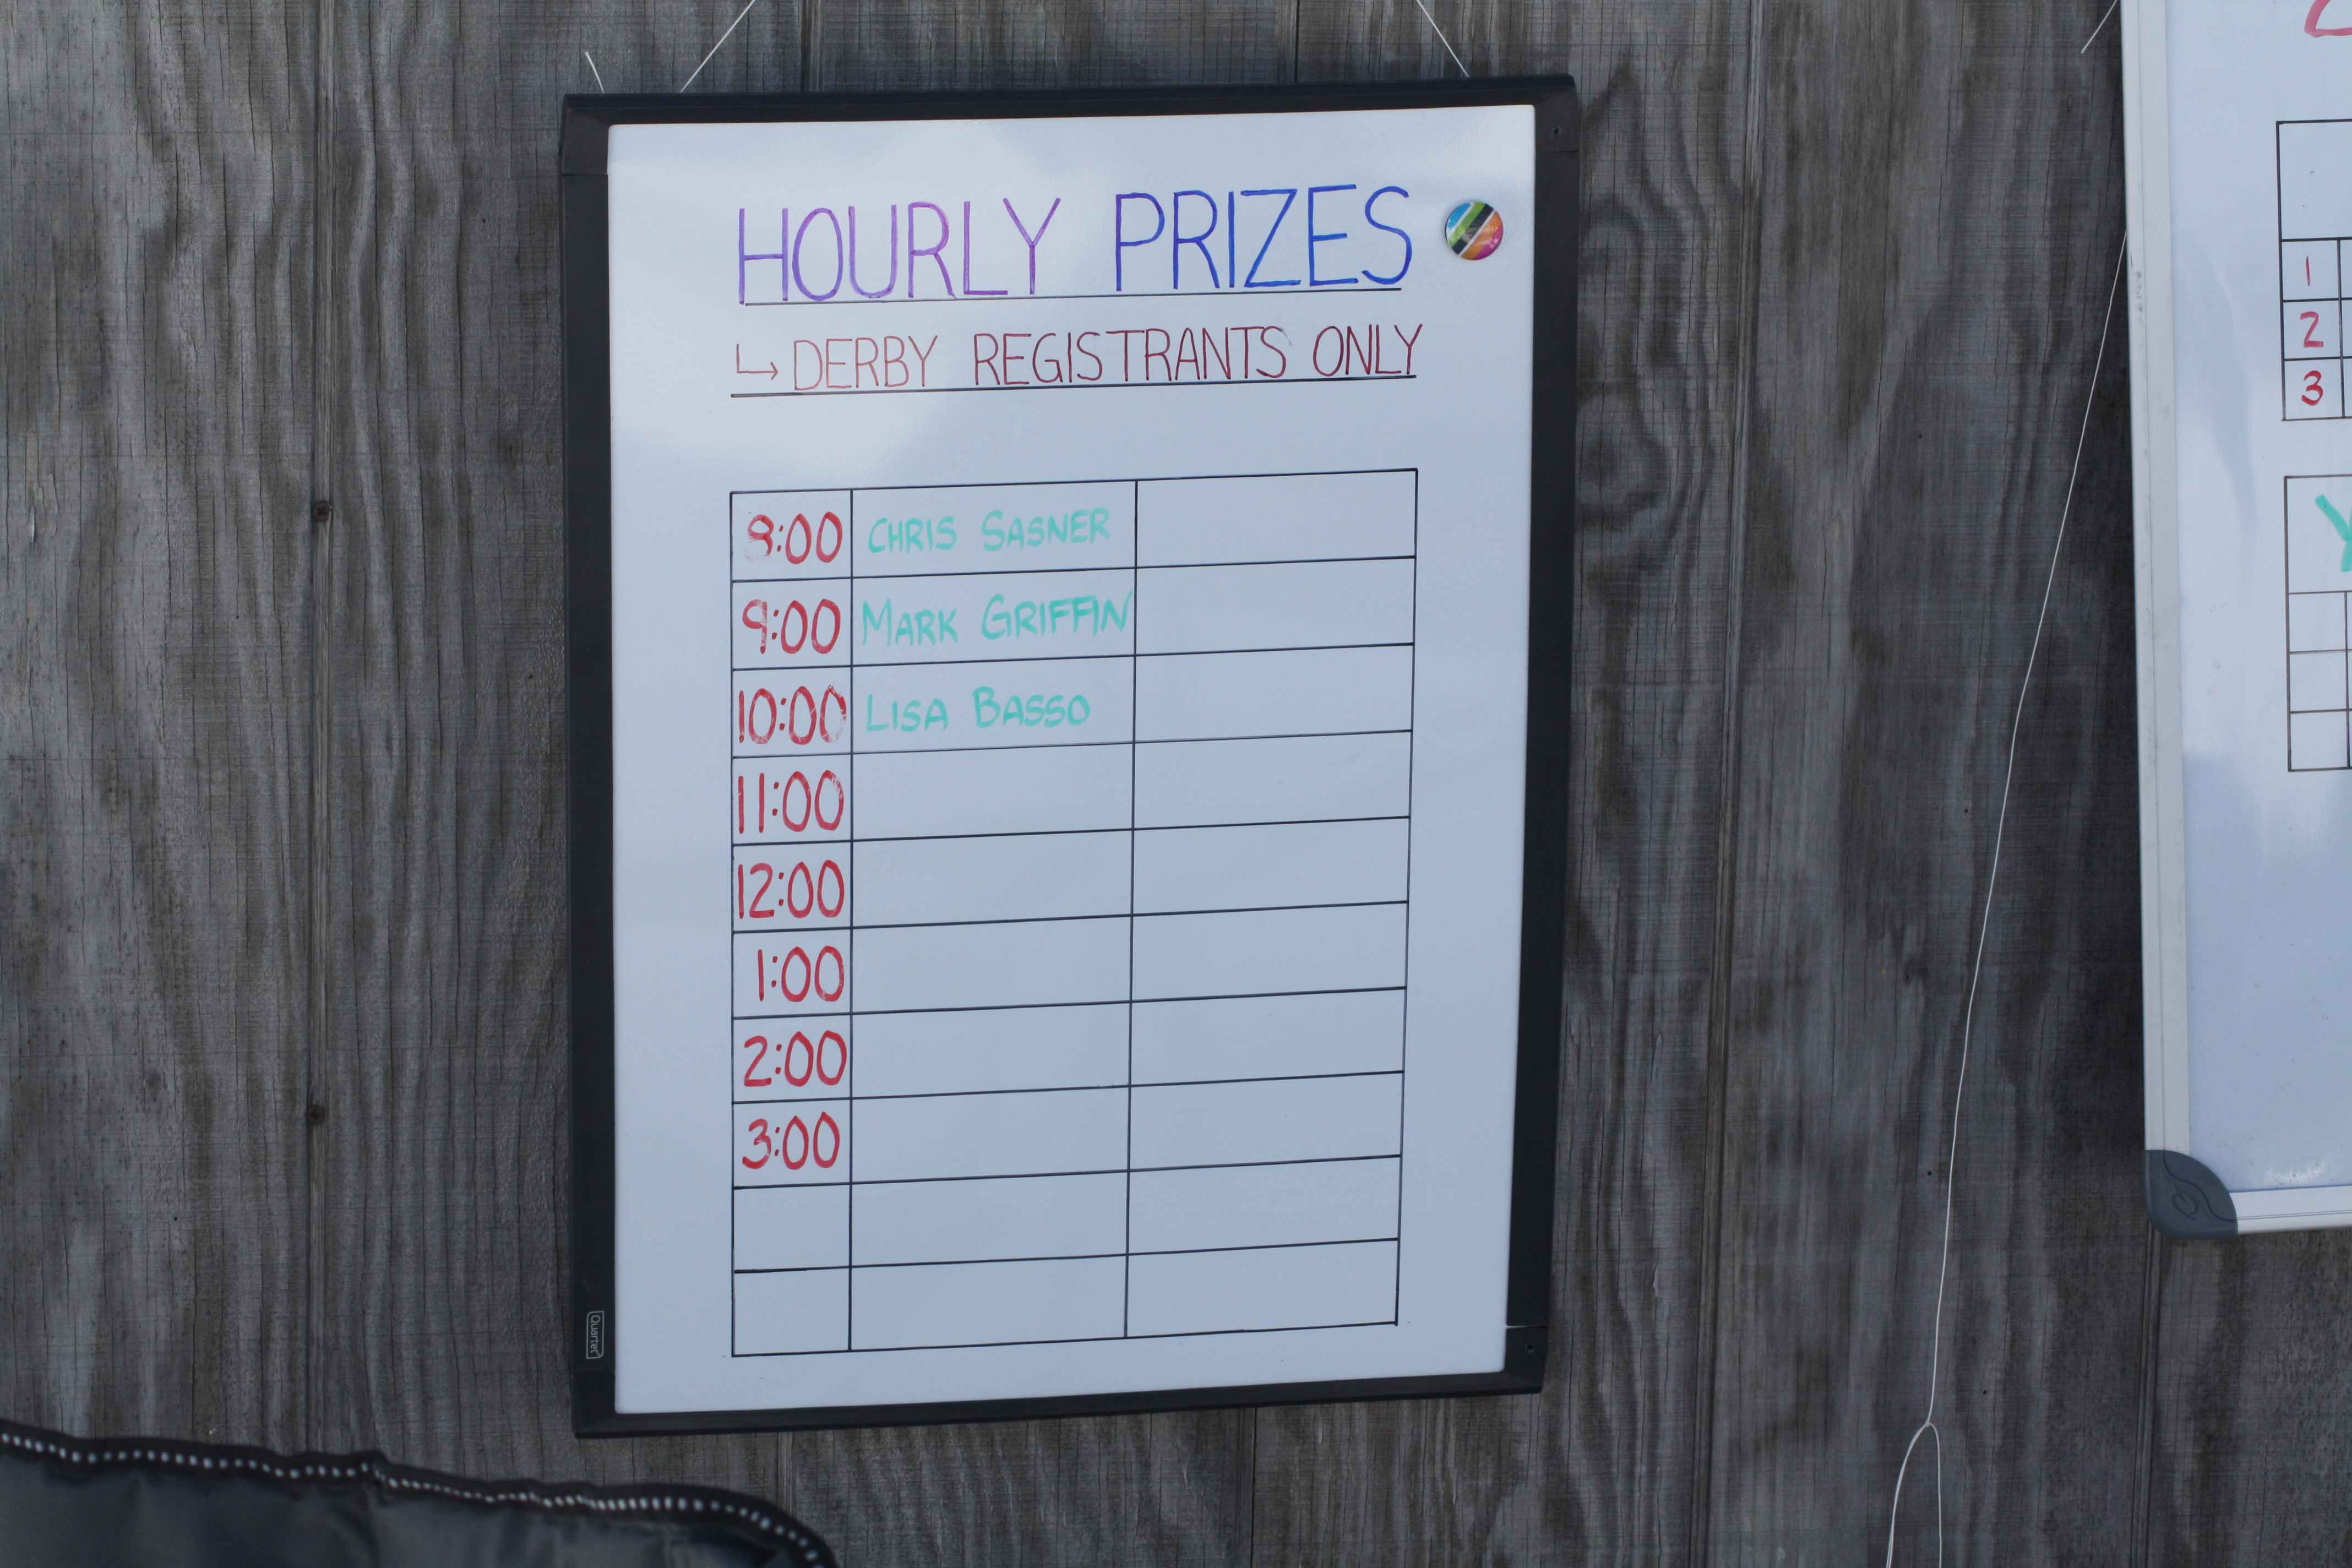 HOURLY PRIZES
↳ DERBY REGISTRANTS ONLY
8:00 CHRIS SASNER
9:00 MARK GRIFFIN
10:00 LISA BASSO
11:00
12:00
1:00
2:00
3:00
Quartet
1
2
3